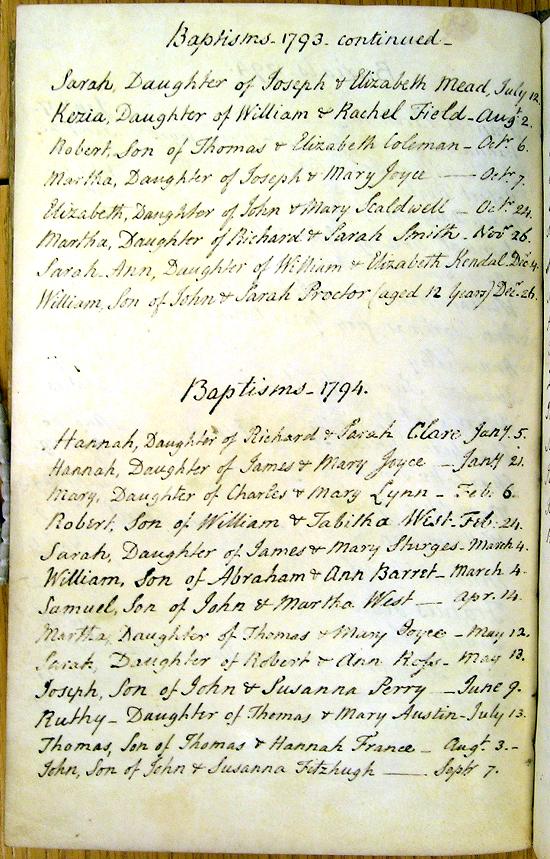 Baptisms - 1793 continued -
Sarah, Daughter of Joseph & Elizabeth Mead, July 12.
Kezia, Daughter of William & Rachel Field - Augt 2.
Robert, Son of Thomas & Elizabeth Coleman - Octr 6.
Martha, Daughter of Joseph & Mary Joyce —— Octr 7.
Elizabeth, Daughter of John & Mary Scaldwell - Octr 24.
Martha, Daughter of Richard & Sarah Smith - Novr 26.
Sarah Ann, Daughter of William & Elizabeth Kendal. Decr 4.
William, Son of John & Sarah Proctor (aged 12 Years) Decr 26.
Baptisms - 1794.
Hannah, Daughter of Richard & Sarah Clare Jany. 5.
Hannah, Daughter of James & Mary Joyce - Jany 21.
Mary, Daughter of Charles & Mary Lynn - Feb. 6.
Robert, Son of William & Tabitha West - Feb. 24.
Sarah, Daughter of James & Mary Sturges - March 4.
William, Son of Abraham & Ann Barret - March 4.
Samuel, Son of John & Martha West — Apr. 14.
Martha, Daughter of Thomas & Mary Joyce - May 12.
Sarah, Daughter of Robert & Ann - May 13.
Joseph, Son of John & Susanna Perry - June 9.
Ruthy - Daughter of Thomas & Mary Austin - July 13.
Thomas, Son of Thomas & Hannah France - Augt. 3. -
John, Son of John & Susanna Fitzhugh —— Septr 7.